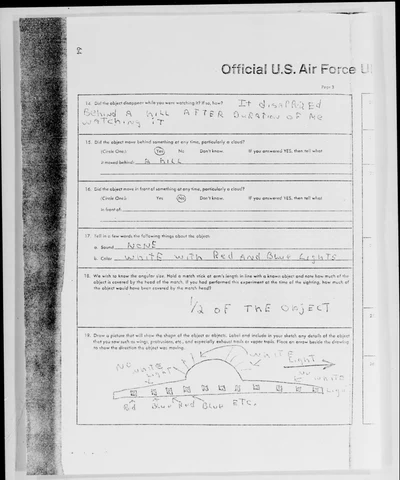 64
Official U.S. Air Force U
Page 3
14. Did the object disappear while you were watching it? If so, how? It disappeared
Behind A hill AFTER DURATION OF me
watching it
15. Did the object move behind something at any time, particularly a cloud?
(Circle One) Yes No Don't know. If you answered YES, then tell what
it moved behind: A hill
16. Did the object move in front of something at any time, particularly a cloud?
(Circle One) Yes No Don't know. If you answered YES, then tell what
in front of
17. Tell in a few words the following things about the object:
a. Sound NONE
b. Color white with Red And Blue Lights
18. We wish to know the angular size. Hold a match stick at arm's length in line with a known object and note how much of the
object is covered by the head of the match. If you had performed this experiment at the time of the sighting, how much of
the object would have been covered by the match head?
1/2 OF THE OBJECT
19. Draw a picture that will show the shape of the object or objects. Label and include in your sketch any details of the object
that you saw such as wings, protrusions, etc., and especially exhaust trails or vapor trails. Place an arrow beside the drawing
to show the direction the object was moving.
white Light
NO white
Light
white
Ligh
Red Blue Red Blue ETC.